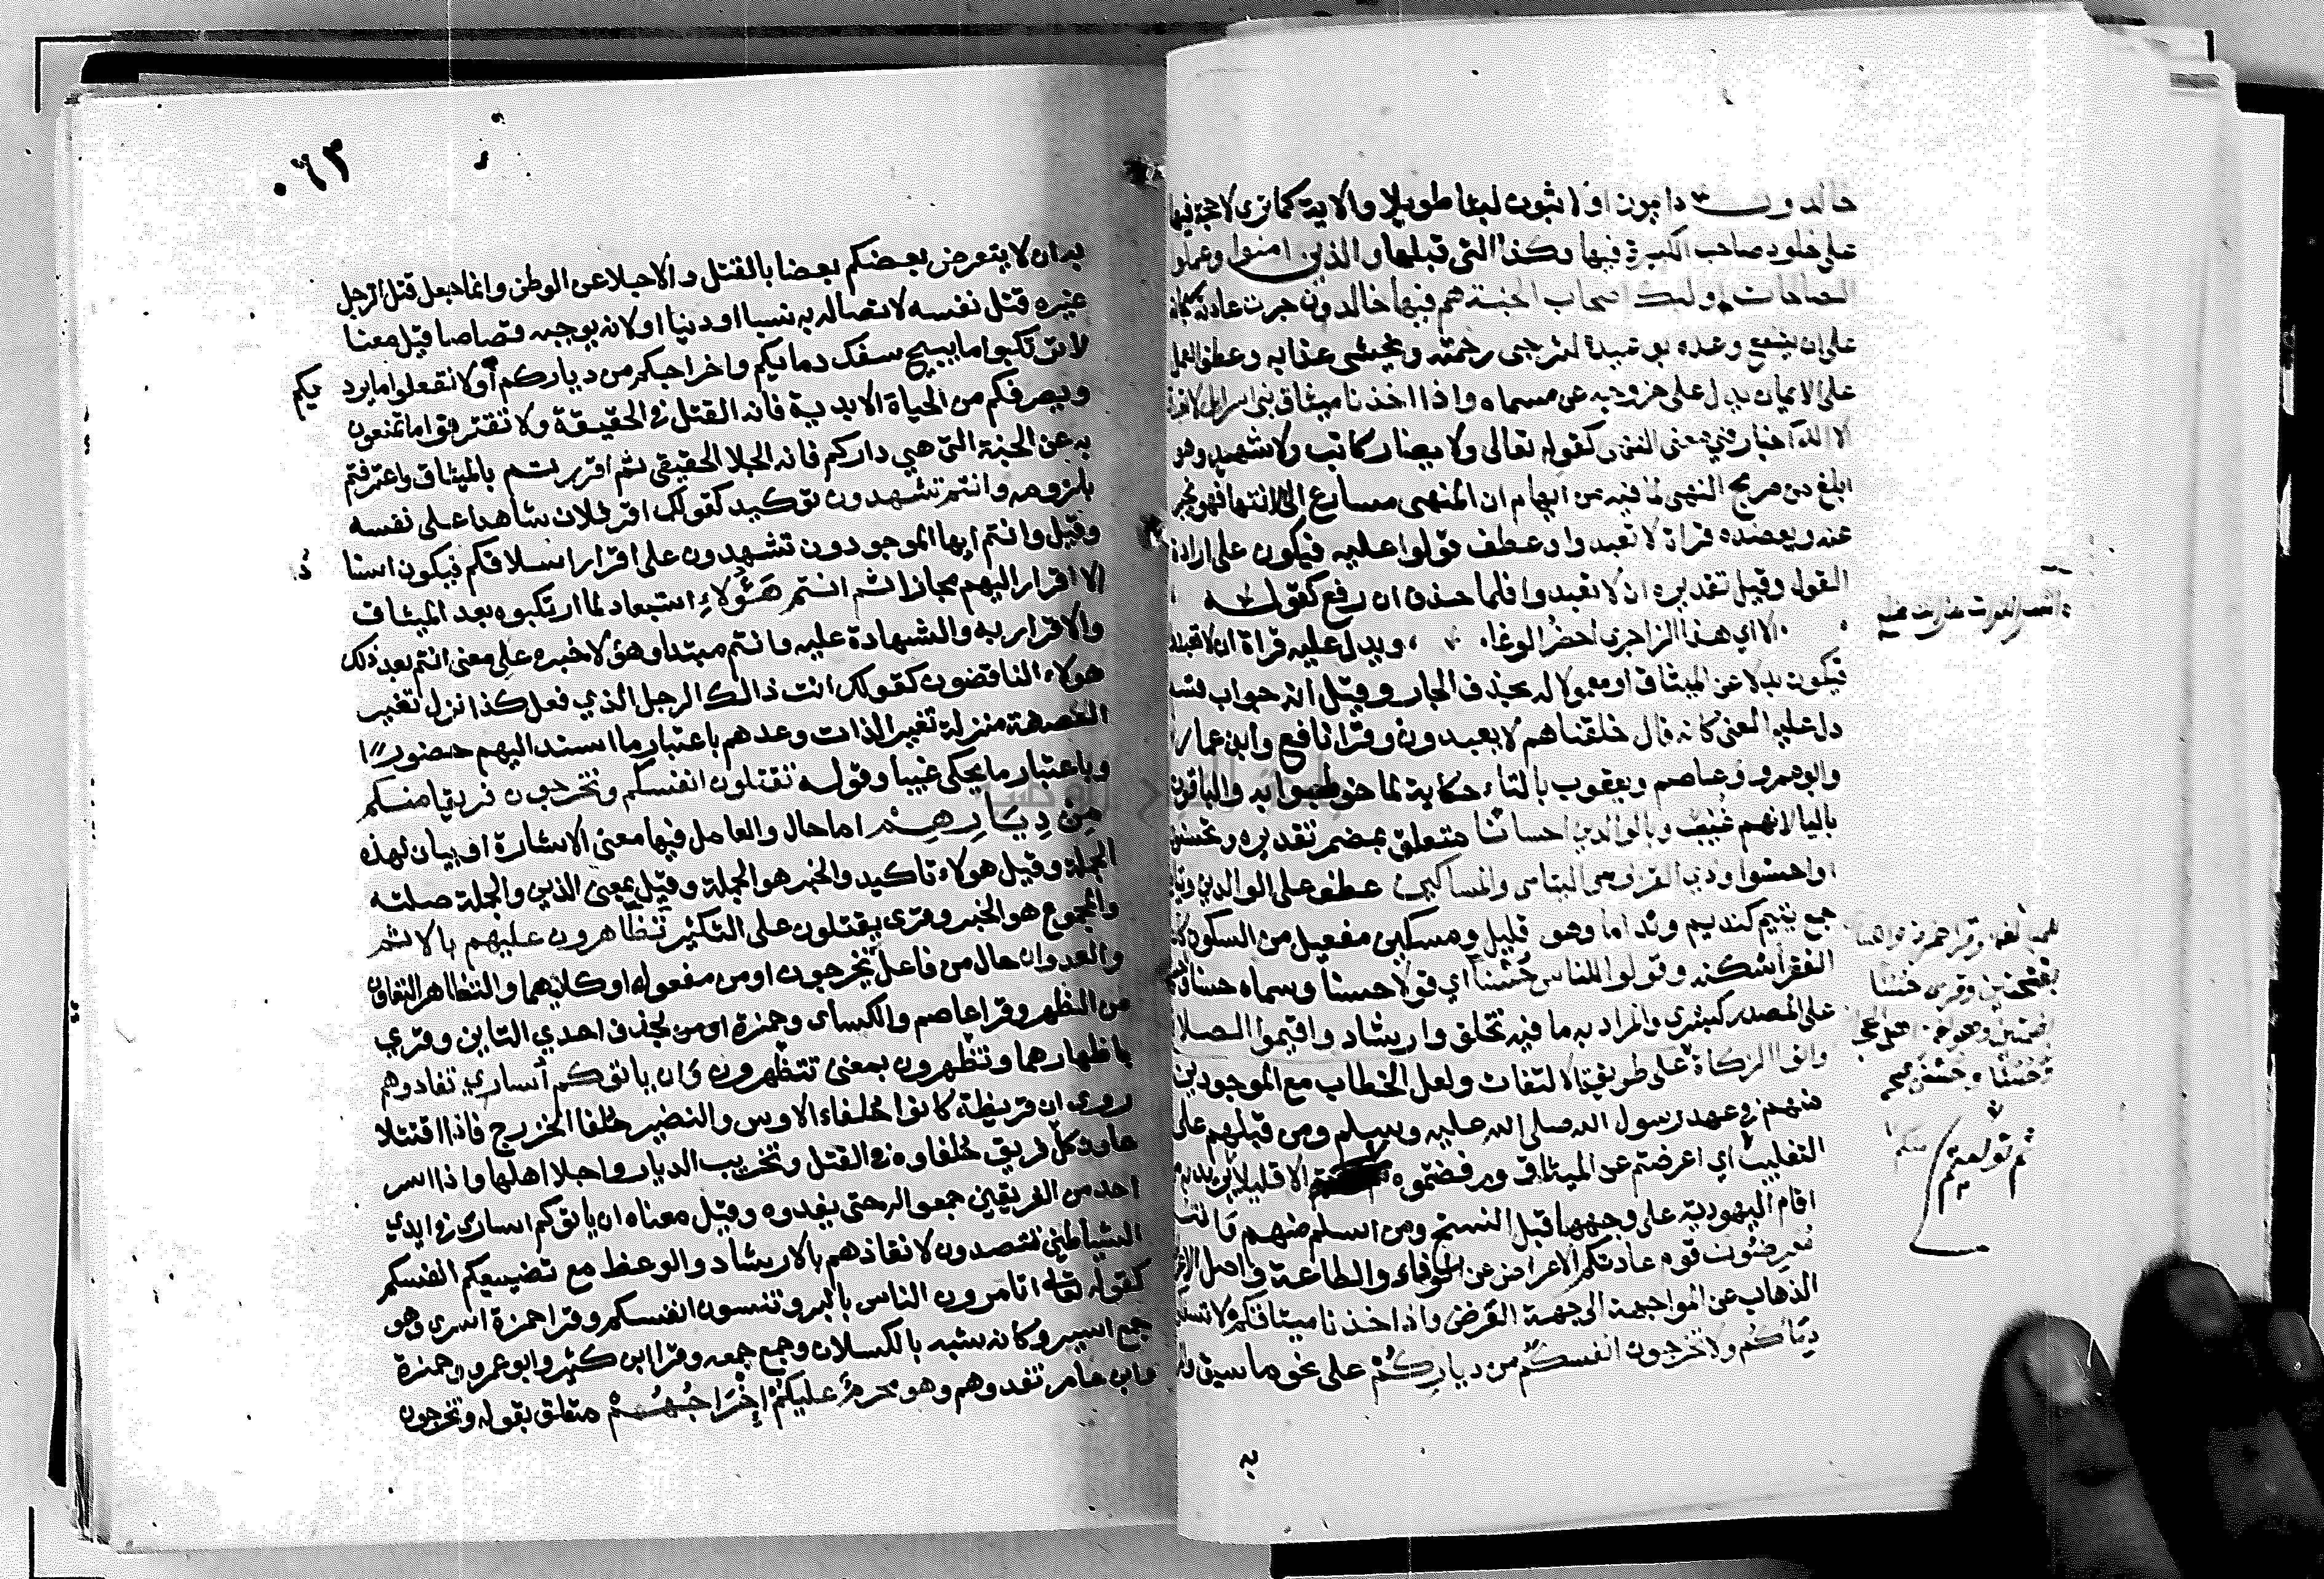 خالدون دايمون او لابثون لبثا طويلا والاية كما ترى لا حجة فيها
على خلود صاحب الكبيرة فيها وكذا التى قبلها والذين امنوا وعملوا
الصالحات اوليك اصحاب الجنة هم فيها خالدون جرت عادته
على ان يشفع وعده بوعيده لترجى رحمته ويخشى عذابه وعطف العمل
على الايمان يدل على خروجه عن مسماه واذ اخذنا ميثاق بنى اسرايل لا تعبدون
الا الله اخبار في معنى النهى كقوله تعالى ولا يضار كاتب ولا شهيد وهو
ابلغ من صريح النهى لما فيه من ايهام ان المنهى مسارع الى الانتها فهو يخبر
عنه ويعضده قراة لا تعبدوا وعطف قولوا عليه فيكون على ارادة
القول وقيل تقديره ان لا تعبدوا فلما حذف ان رفع كقوله
الا اي هذا الزاجري احضر الوغا ويدل عليه قراة ان لا تعبدوا
فيكون بدلا عن الميثاق او معمولا له بحذف الجار وقيل انه جواب قسم
دل عليه المعنى كانه قال حلفناهم لا يعبدون وقرا نافع وابن عامر
وابو عمرو وعاصم ويعقوب بالتاء حكاية لما خوطبوا به والباقون
باليا لانهم غيب وبالوالدين احسانا متعلق بمضمر تقديره وتحسنون
او احسنوا وذي القربى واليتامى والمساكين عطف على الوالدين
جمع يتيم كنديم ونداما وهو قليل ومسكين مفعيل من السكون كان
الفقر اسكنه وقولوا للناس حسنا اي قولا حسنا وسماه حسنا
على المصدر كبشرى والمراد به ما فيه تخلق وارشاد واقيموا الصلاة
واتوا الزكاة على طريقة الالتفات ولعل الخطاب مع الموجودين
منهم في عهد رسول الله صلى الله عليه وسلم ومن قبلهم على
التغليب اي اعرضتم عن الميثاق ورفضتموه الا قليلا يريد به من
اقام اليهودية على وجهها قبل النسخ ومن اسلم منهم وانتم
معرضون قوم عادتكم الاعراض عن الوفاء والطاعة واصل الاعراض
الذهاب عن المواجهة الى جهة العرض واذ اخذنا ميثاقكم لا تسفكون
دماكم ولا تخرجون انفسكم من دياركم على نحو ما سبق والمراد
به
بفتحتين وقرى حسنا
بضمتين وهو لغة اهل الحجاز
وحسنا وحسنى
ثم توليتم
٠٦٣
به ان لا يتعرض بعضكم بعضا بالقتل والاجلا عن الوطن وانما جعل قتل الرجل
غيره قتل نفسه لاتصاله به نسبا او دينا او لانه يوجبه قصاصا قيل معنا
لا ترتكبوا ما يبيح سفك دمايكم واخراجكم من دياركم او لا تفعلوا ما يرد
يكم
ويصرفكم من الحياة الابدية فانه القتل في الحقيقة ولا تقترفوا ما تمنعون
به عن الجنة التى هي داركم فانه الجلا الحقيقي ثم اقررتم بالميثاق واعترفتم
بلزومه وانتم تشهدون توكيد كقولك اقر فلان شاهدا على نفسه
وقيل وانتم ايها الموجودون تشهدون على اقرار اسلافكم فيكون اسنا
د
الاقرار اليهم مجازا ثم انتم هَؤُلاءِ استبعاد لما ارتكبوه بعد الميثاق
والاقرار به والشهادة عليه وانتم مبتدا وهؤلا خبره على معنى انتم بعد ذلك
هولاء الناقضون كقولك انت ذالك الرجل الذي فعل كذا نزل تغير
الصفة منزلة تغير الذات وعدهم باعتبار ما اسند اليهم حضورا
وباعتبار ما يحكى غيبا وقوله تقتلون انفسكم وتخرجون فريقا منكم
مِنْ دِيَارِهِمْ اما حال والعامل فيها معنى الاشارة او بيان لهذه
الجملة وقيل هولاء تاكيد والخبر هو الجملة وقيل بمعنى الذين والجملة صلته
والمجموع هو الخبر وقرى يقتلون على التكثير تظاهرون عليهم بالاثم
والعدوان حال من فاعل تخرجون او من مفعوله او كليهما والتظاهر التعاون
من الظهر وقرا عاصم والكساى وحمزة بحذف احدي التاين وقري
باظهارهما وتظهرون بمعنى تتظهرون وان ياتوكم أسارى تفادوهم
روى ان قريظة كانوا حلفاء الاوس والنضير حلفا الخزرج فاذا اقتتلا
عاون كل فريق حلفاوه في القتل وتخريب الديار واجلا اهلها واذا اسر
احد من الفريقين جمعوا له حتى يفدوه وقيل معناه ان ياتوكم اسارى في ايدي
الشياطين تتصدون لانقاذهم بالارشاد والوعظ مع تضييعكم انفسكم
كقوله تعالى اتامرون الناس بالبر وتنسون انفسكم وقرا حمزة اسرى وهو
جمع اسير وكانه شبه بالكسلان وجمع جمعه وقرا ابن كثير وابو عمرو وحمزة
وابن عامر تفدوهم وهو محرم عليكم إِخْرَاجُهُمْ متعلق بقوله وتخرجون